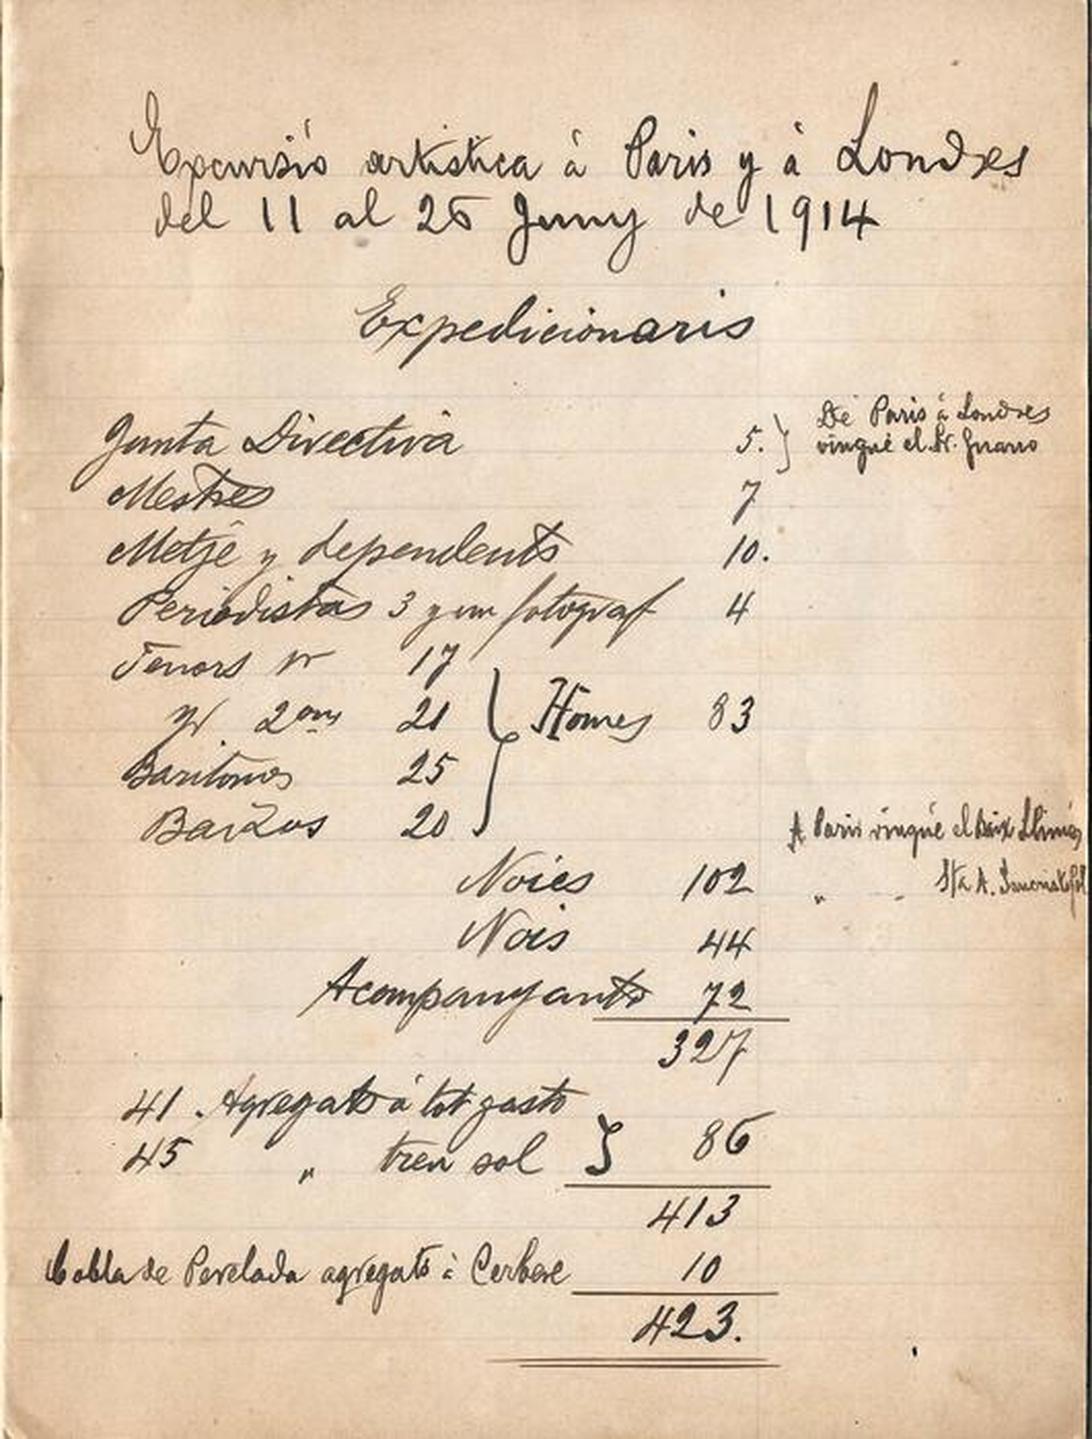 Excursió artística à Paris y à Londres
del 11 al 26 Juny de 1914
Expedicionaris
Junta Directiva 5. } De Paris à Londres
vingué el Sr.
Mestres 7
Metje y dependents 10.
Periodistas 3 y un fotograf 4
Tenors 17
2ons 21 } Homes 83
Baritonos 25
Baixos 20
A Paris vingué el Baix Llimós
Noies 102 " - Sta A.
Nois 44
Acompanyants 72
327
41. Agregats à tot gasto
45 " tren sol } 86
413
Cobla de Perelada agregats à Cerbere 10
423.